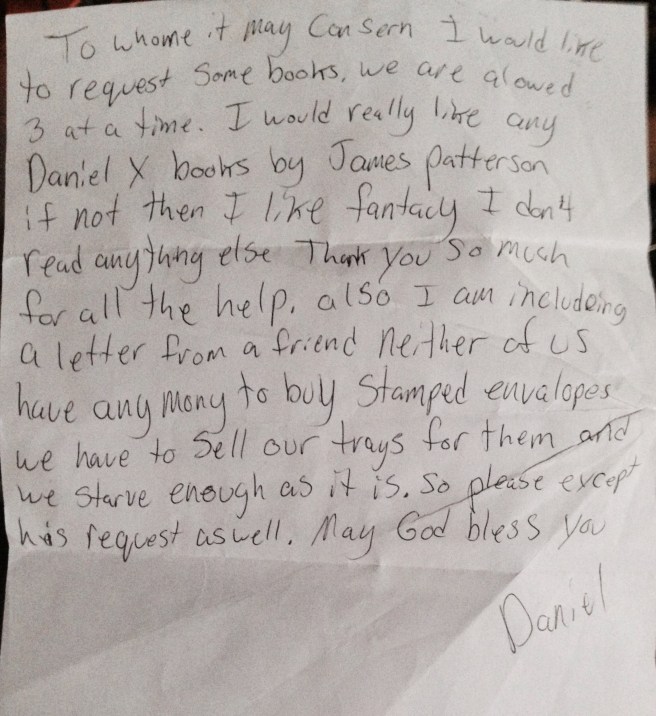 To whome it may Consern I would like
to request Some books, we are alowed
3 at a time. I would really like any
Daniel X books by James patterson
if not then I like fantacy I don't
read anything else Thank you so much
for all the help. also I am includeing
a letter from a friend neither of us
have any mony to buy Stamped envalopes
we have to Sell our trays for them and
we starve enough as it is. So please except
his request as well. May God bless you
Daniel